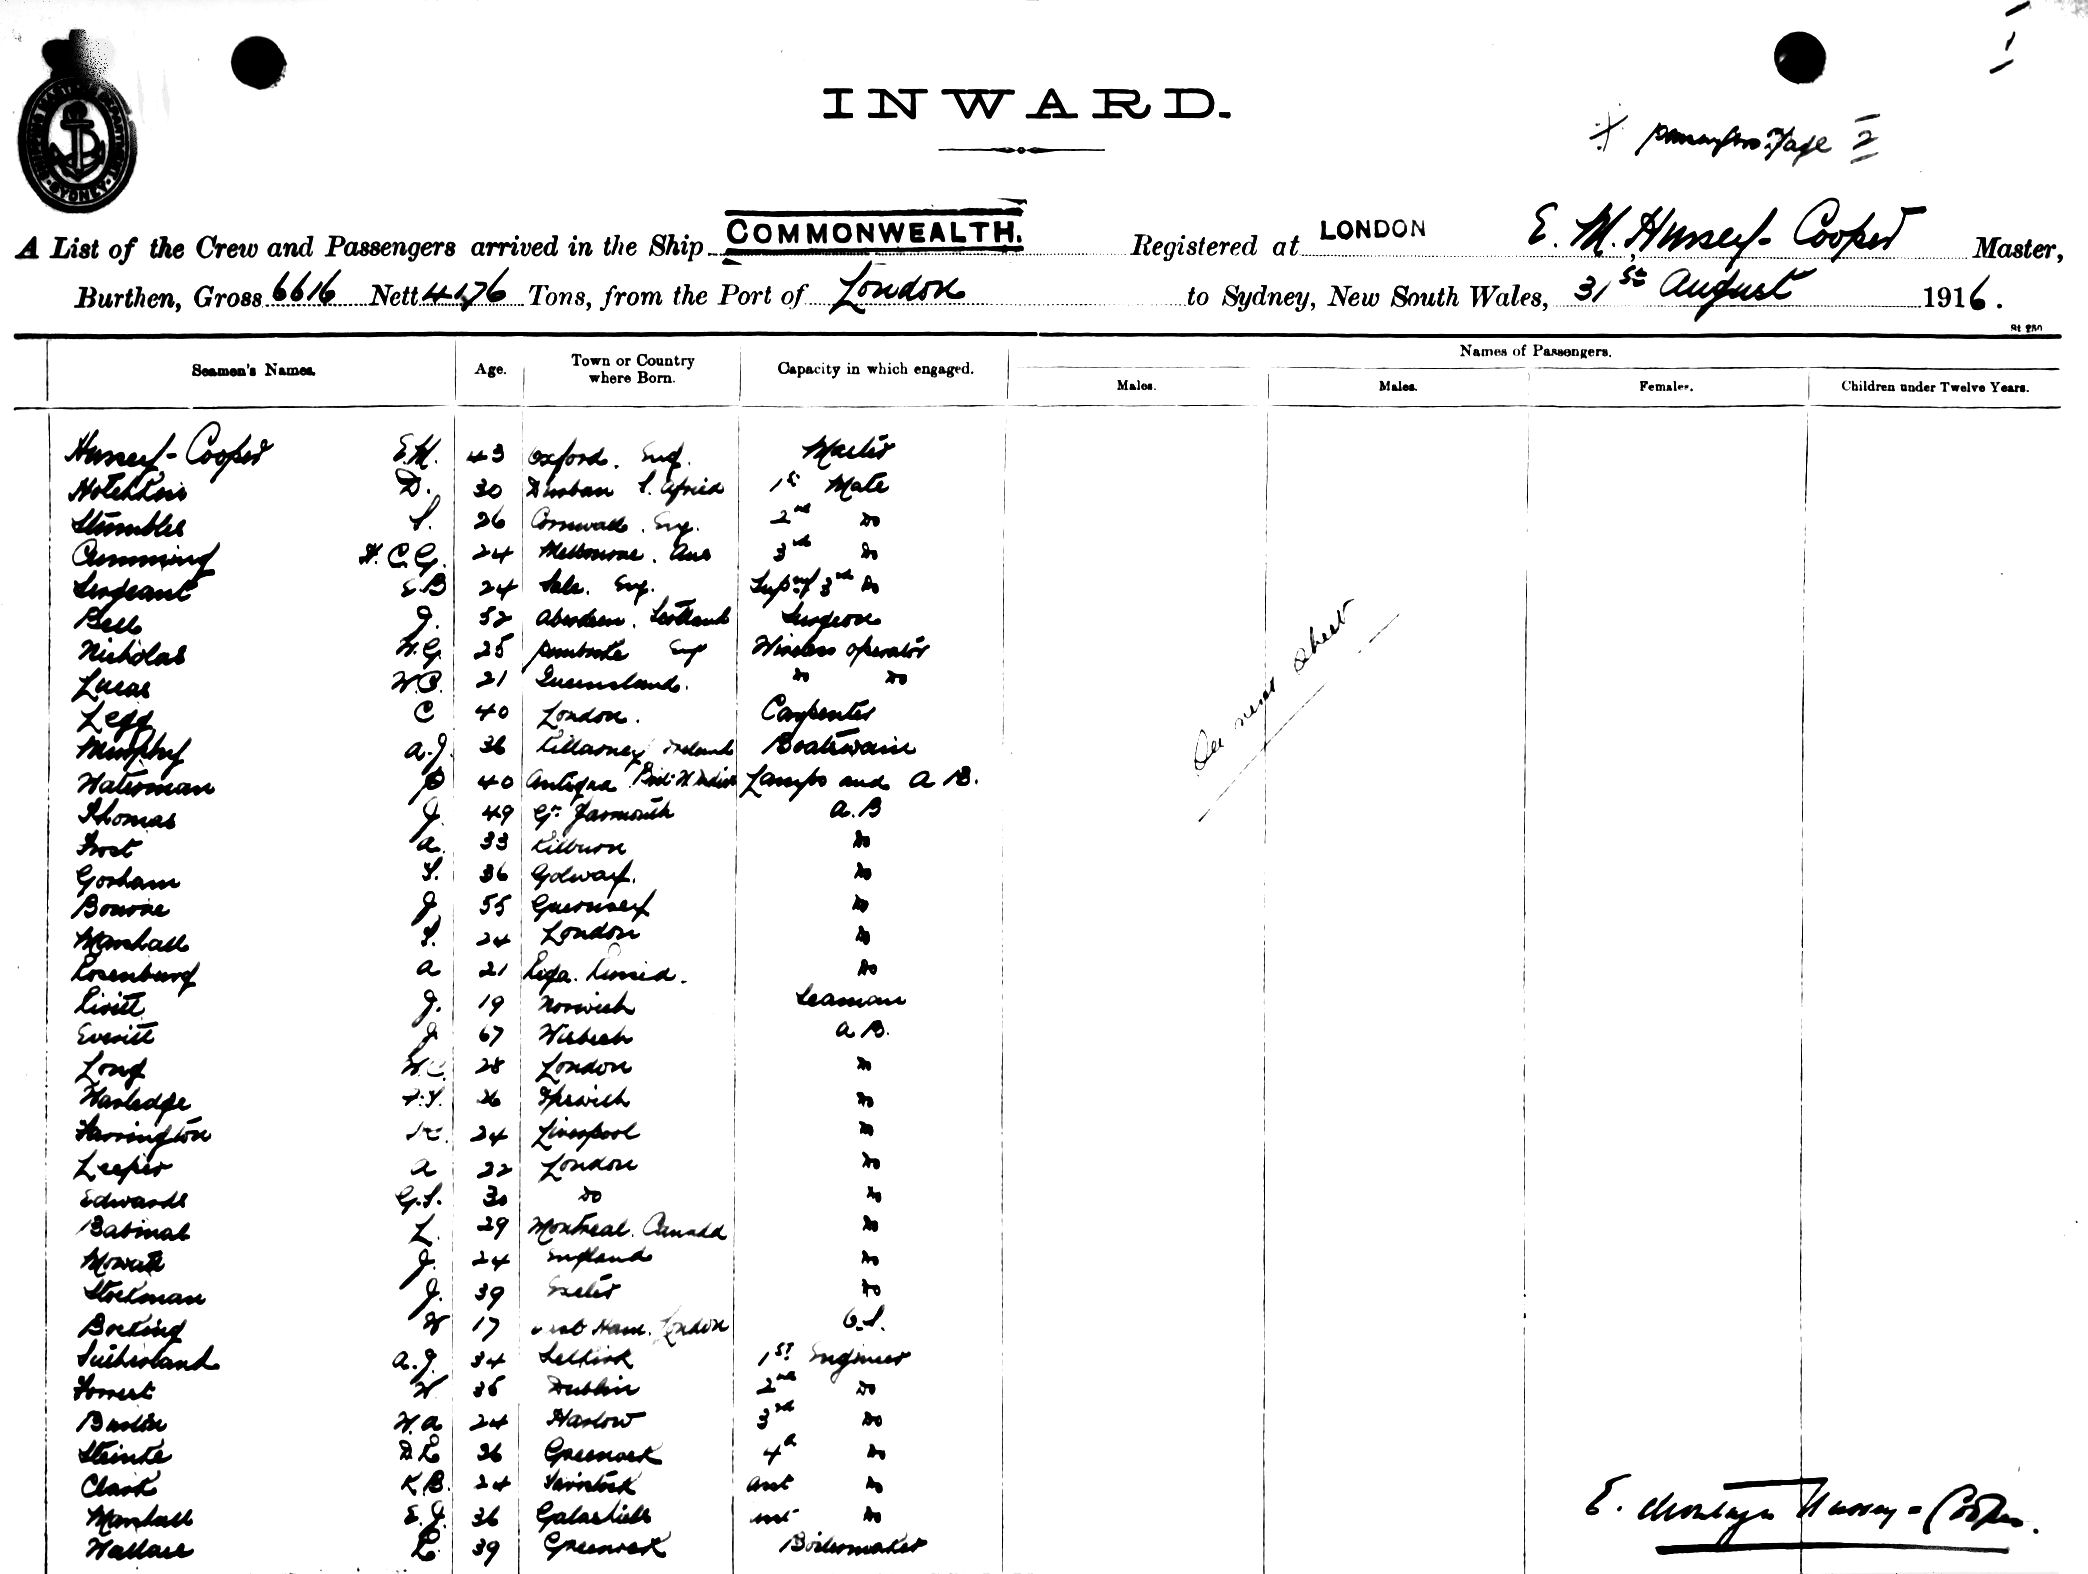 INWARD.
Passengers Page 2
A List of the Crew and Passengers arrived in the Ship COMMONWEALTH. Registered at LONDON E. M. Hussey-Cooper Master,
Burthen, Gross 6616 Nett 4176 Tons, from the Port of London to Sydney, New South Wales, 31st August 1916.
Names of Passengers.
Seamen's Names. Age. Town or Country where Born. Capacity in which engaged. Males. Males. Females. Children under Twelve Years.
Hussey-Cooper E.M. 43 Oxford. Eng. Master
Hotchkis D. 30 Durban S. Africa 1st Mate
Stumbles S. 26 Cornwall. Eng. 2nd Do
Cumming H.C.G. 24 Melbourne. Aus 3rd Do
Sergeant E.B 24 Sale. Eng. 3rd Do
Bell J. 52 Aberdeen. Scotland Surgeon
Nicholas W.G. 25 Pembroke Eng Wireless operator
Lucas W.B. 21 Queensland. Do Do
Legg C 40 London. Carpenter
Murphy A.J. 36 Killarney Ireland Boatswain
Waterman P 40 Antigua Brit. W Indies Lamps and A B.
Thomas J. 49 Gt. Yarmouth A.B
Frost A. 33 Kilburn Do
Gorham S. 36 Do
Bourne J 55 Guernsey Do
Marshall S. 24 London Do
Rosenburg A 21 Riga. Russia. Do
Rivett J. 19 Norwich Seaman
Everitt J 67 Wisbech A B.
Long W.C. 28 London Do
Harledge 26 Ipswich Do
Farrington 24 Liverpool Do
Leeper A 22 London Do
Edwards G.S. 30 Do Do
Babinal L. 29 Montreal. Canada Do
Mowatt J. 24 England Do
Stockman J. 39 Exeter Do
Bocking W 17 Ham. London O.S.
Sutherland A.J. 34 Selkirk 1st Engineer
Forrest W. 35 Dublin 2nd Do
Bustin W.A 24 Harlow 3rd Do
D.L 36 Greenock 4th Do
Clark K B. 24 Tavistock Asst Do
Marshall E.J. 36 Galashiels Do
Wallace R. 39 Greenock Boilermaker
See next sheet
E. Montagu Hussey-Cooper.